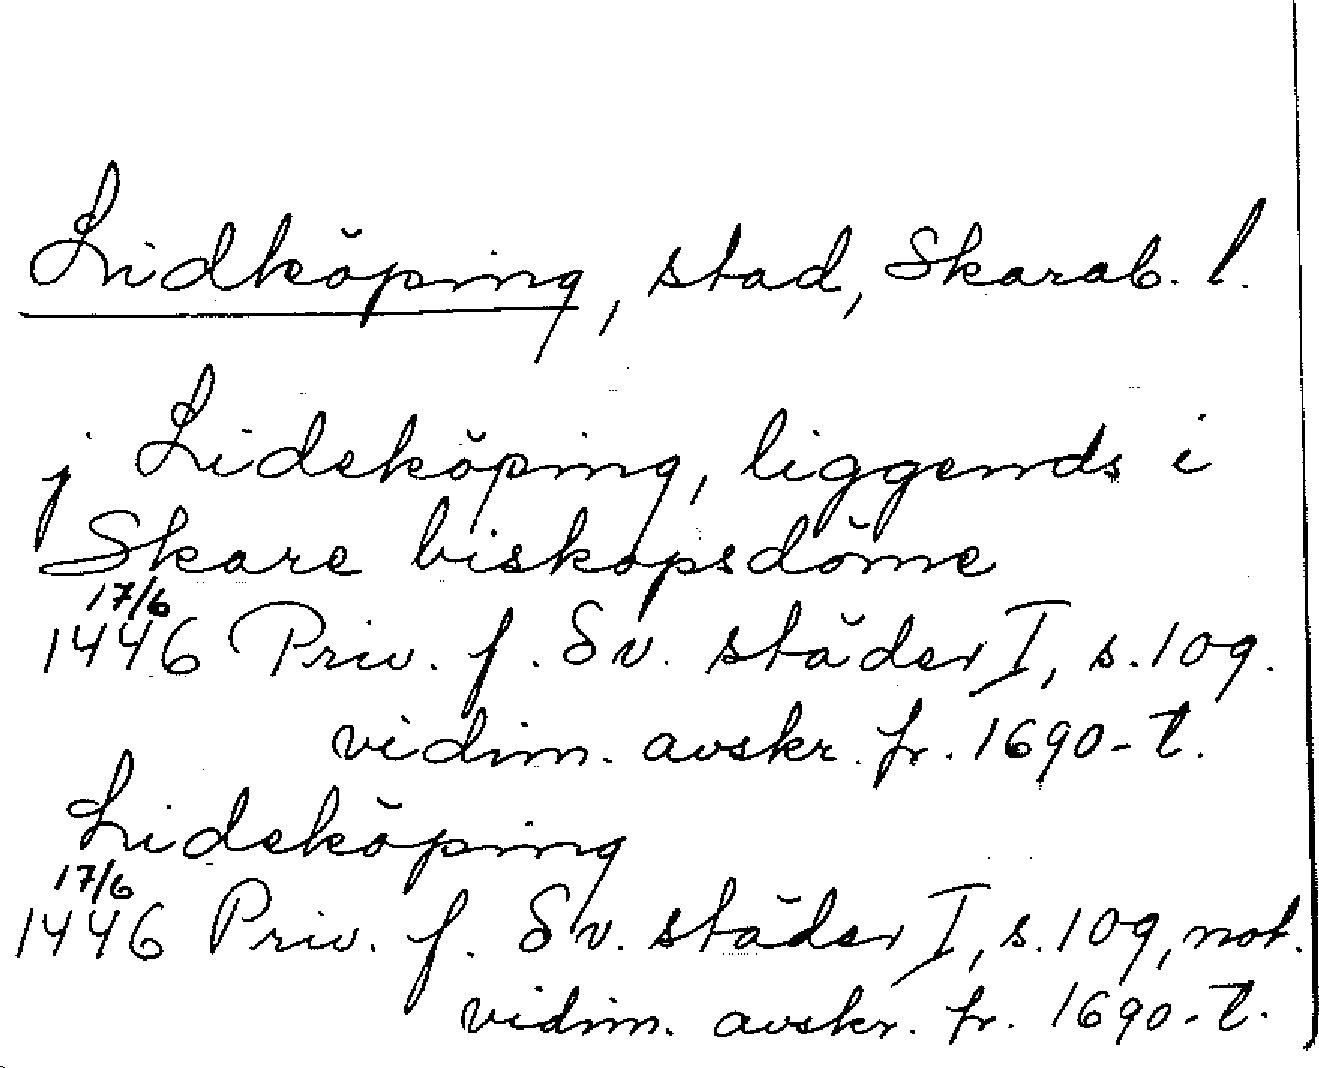 Lidköping, stad, Skarab. l.
j Lideköping, liggends i
Skare biskopsdöme
17/6
1446 Priv. f. Sv. städer I, s. 109.
vidim. avskr. fr. 1690-t.
Lideköping
17/6
1446 Priv. f. Sv. städer I, s. 109, not.
vidim. avskr. fr. 1690-t.